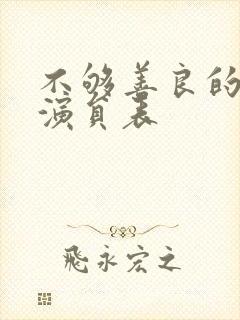 不够善良的
演员表
飛永宏之